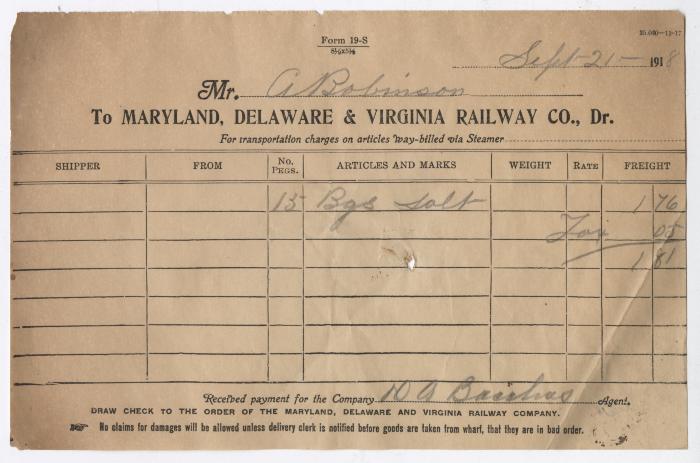 Form 19-S
8½x5½
25,000—12-17
Sept-21- 1918
Mr. A Robinson
To MARYLAND, DELAWARE & VIRGINIA RAILWAY CO., Dr.
For transportation charges on articles way-billed via Steamer
SHIPPER FROM No. Pkgs. ARTICLES AND MARKS WEIGHT RATE FREIGHT
15 Bgs Salt 1 76
Tax 05
1 81
Received payment for the Company Agent.
DRAW CHECK TO THE ORDER OF THE MARYLAND, DELAWARE AND VIRGINIA RAILWAY COMPANY.
No claims for damages will be allowed unless delivery clerk is notified before goods are taken from wharf, that they are in bad order.